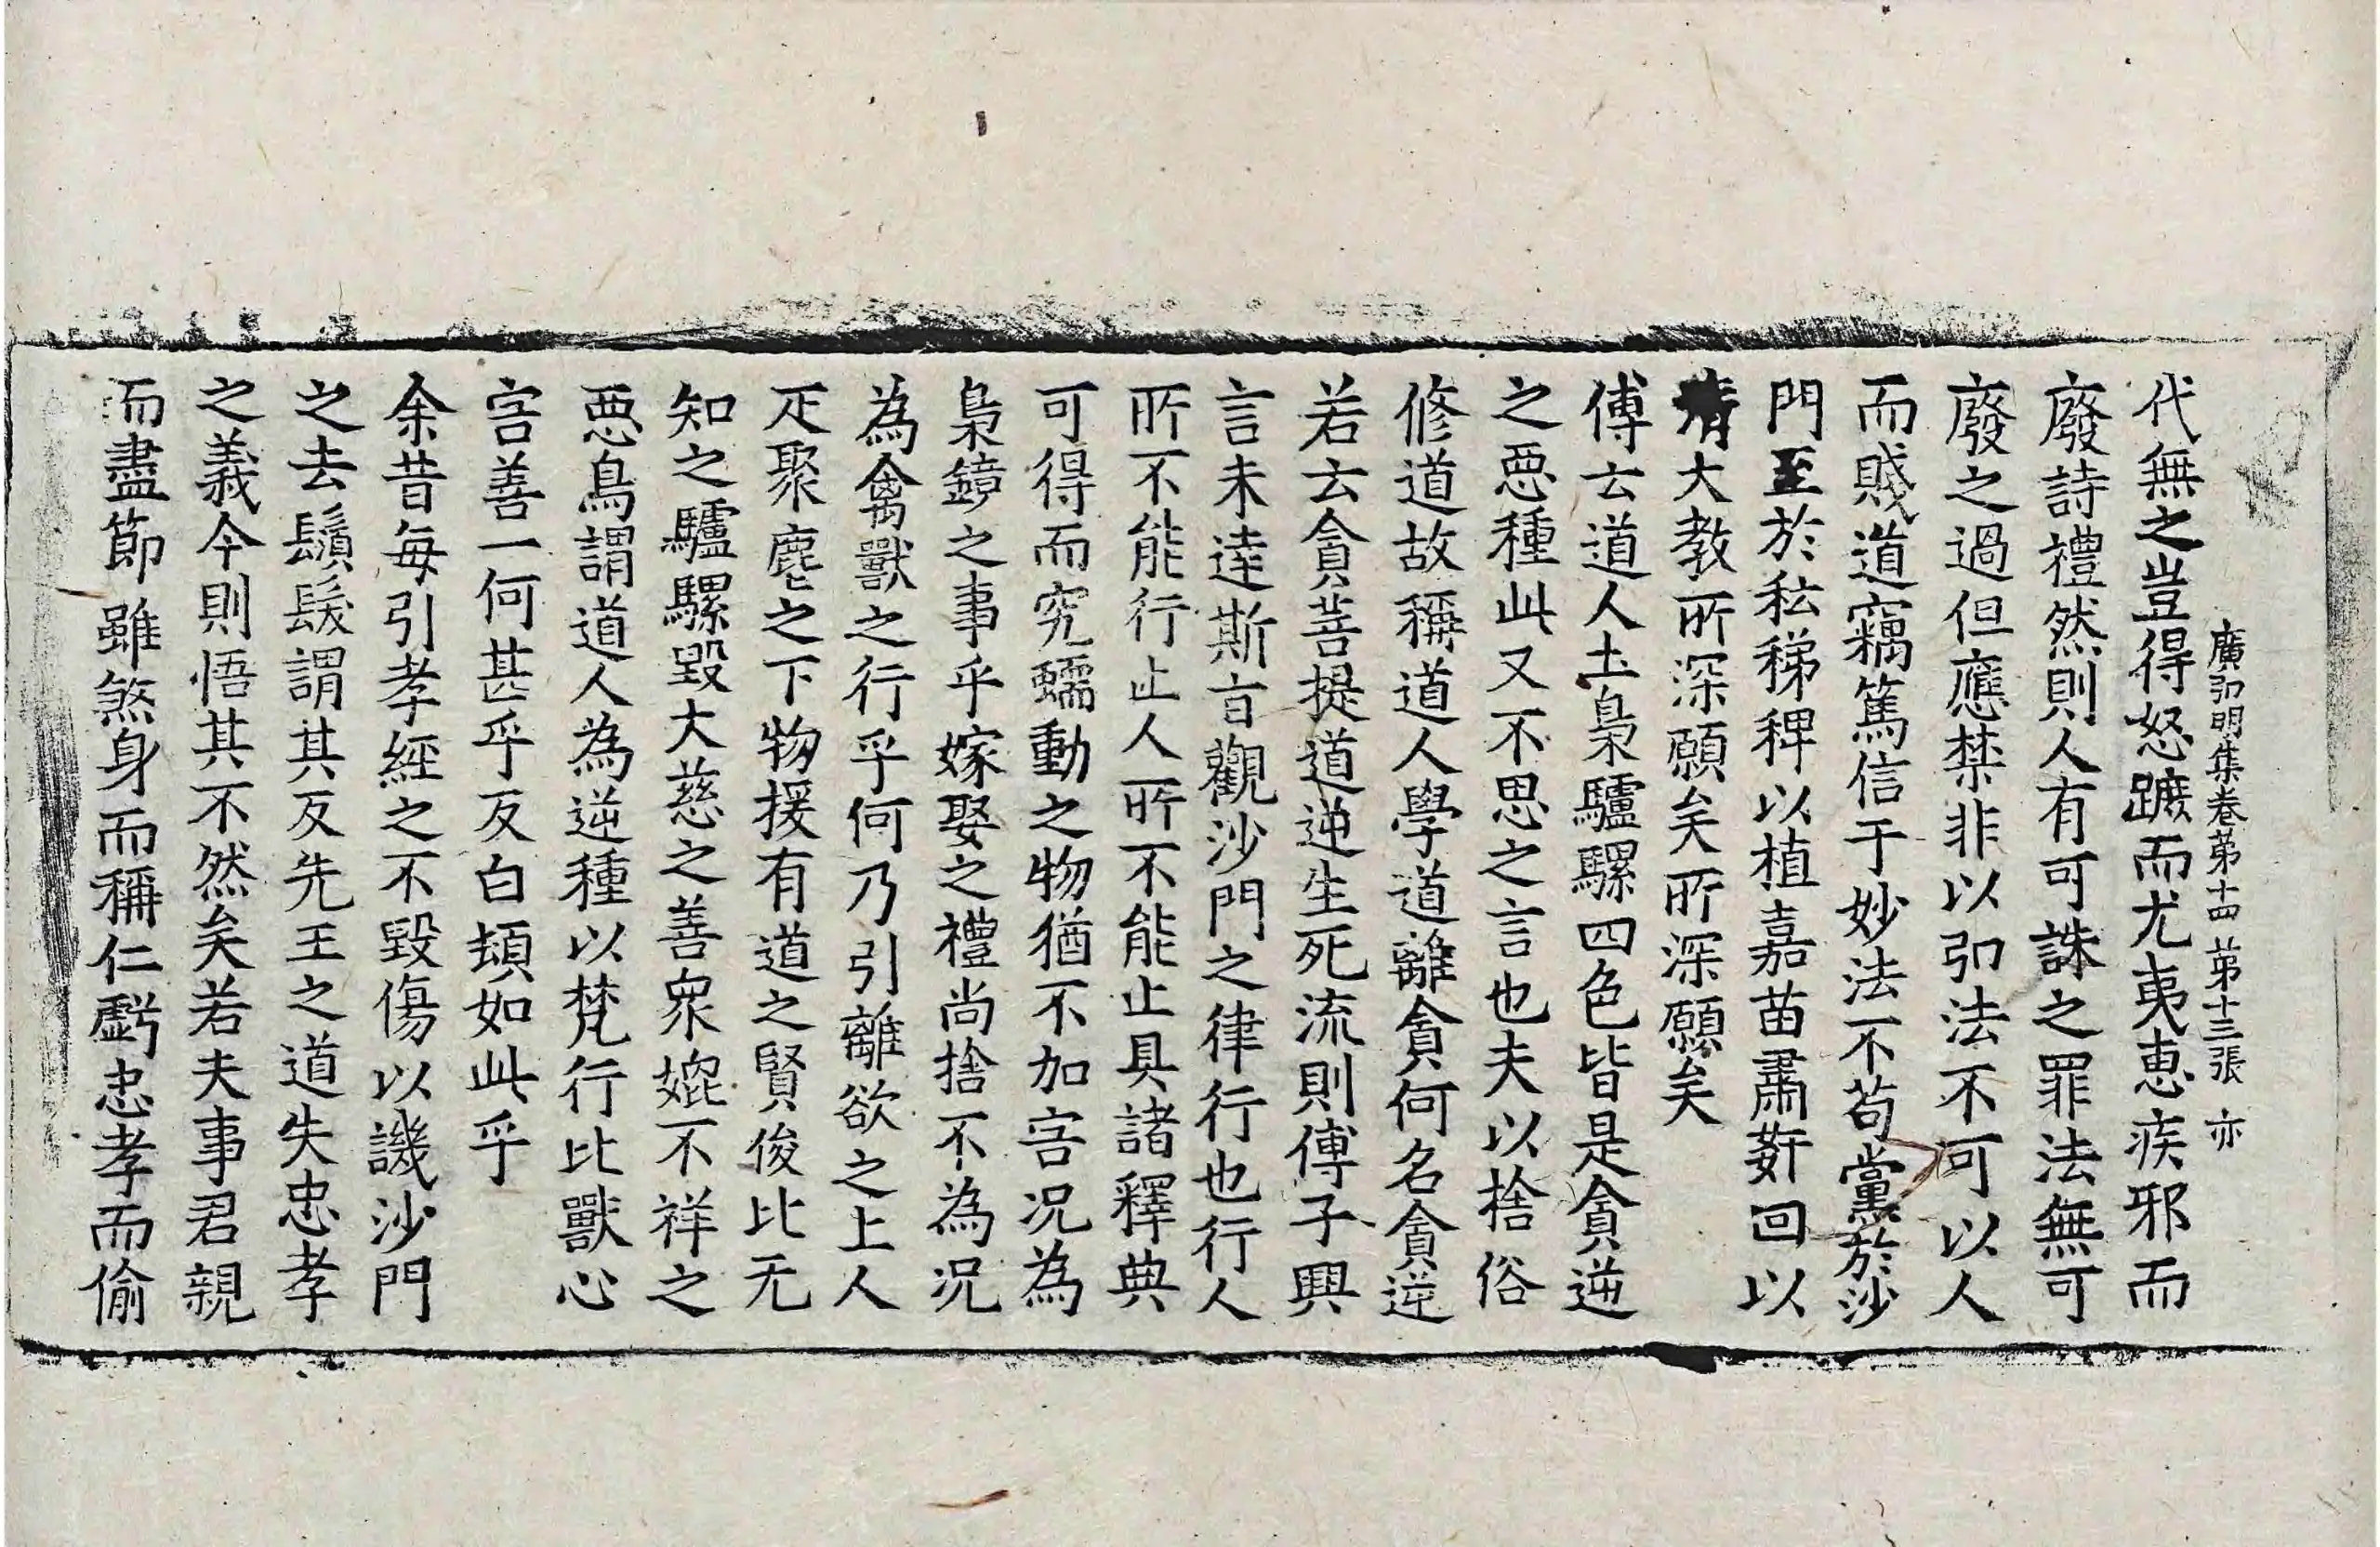 廣弘明集卷苐十四 苐十三張 亦
代無之豈得怒蹠而尤夷惠疾邪而
廢詩禮然則人有可誅之罪法無可
廢之過但應禁非以弘法不可以人
而賤道竊篤信于妙法不苟黨於沙
門至於秐稊稗以植嘉苗肅姧回以
清大教所深願矣所深願矣
傅云道人土梟驢騾四色皆是貪逆
之惡種此又不思之言也夫以捨俗
修道故稱道人學道離貪何名貪逆
若云貪菩提道逆生死流則傅子興
言未達斯旨觀沙門之律行也行人
所不能行止人所不能止具諸釋典
可得而究蠕動之物猶不加害況為
梟鏡之事乎嫁娶之禮尚捨不為況
為禽獸之行乎何乃引離欲之上人
疋聚麀之下物援有道之賢俊比无
知之驢騾毀大慈之善衆媲不祥之
惡鳥謂道人為逆種以梵行比獸心
害善一何甚乎反白頊如此乎
余昔每引孝經之不毀傷以譏沙門
之去鬚髮謂其反先王之道失忠孝
之義今則悟其不然矣若夫事君親
而盡節雖煞身而稱仁虧忠孝而偷